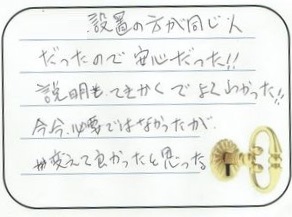 設置の方が同じ人
だったので安心だった!!
説明も、てきかくでよくわかった!!
今今、必要ではなかったが、
変えて良かったと思った